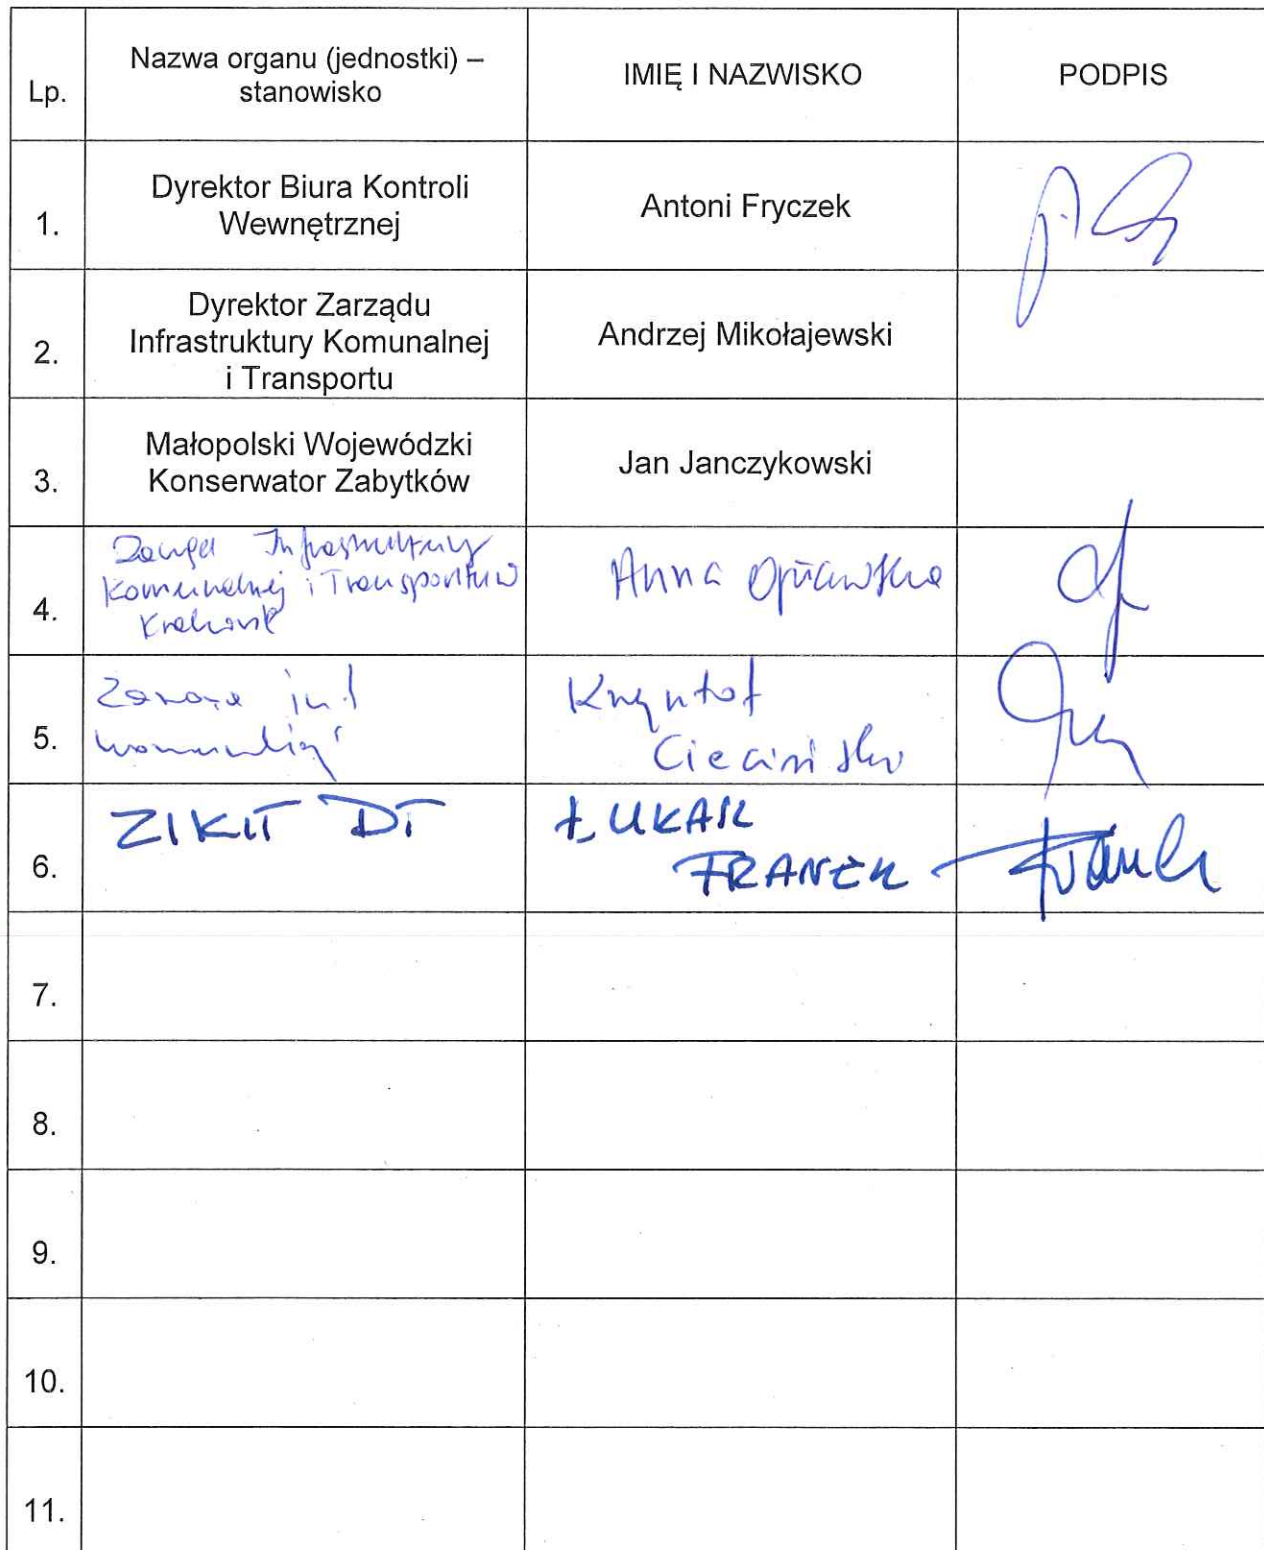 Lp.
Nazwa organu (jednostki) –
stanowisko
IMIĘ I NAZWISKO
PODPIS
1.
Dyrektor Biura Kontroli
Wewnętrznej
Antoni Fryczek
2.
Dyrektor Zarządu
Infrastruktury Komunalnej
i Transportu
Andrzej Mikołajewski
3.
Małopolski Wojewódzki
Konserwator Zabytków
Jan Janczykowski
4.
Zarząd Infrastruktury
Komunalnej i Transportu w
Krakowie
Anna
5.
Krzysztof
6.
ZIKIT DT
ŁUKASZ
FRANEK
7.
8.
9.
10.
11.